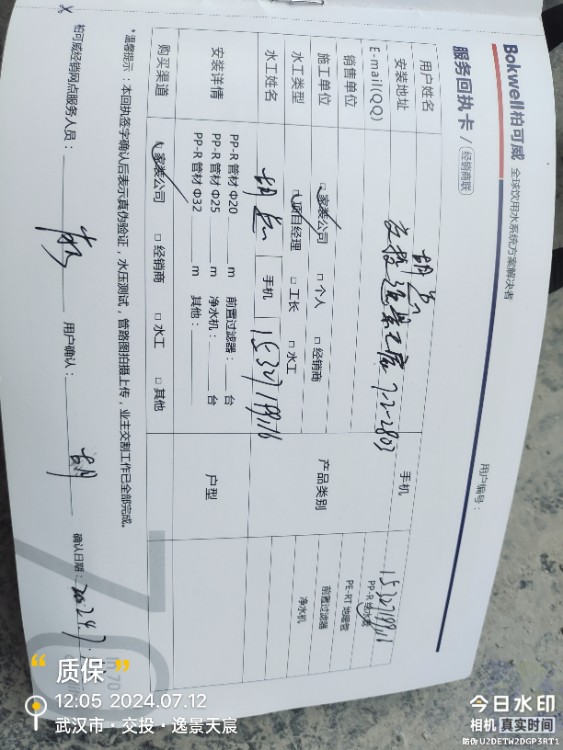 Bokwell柏可威 全球饮用水系统方案解决者
服务回执卡 / 经销商联
用户编号：
用户姓名 胡总 手机 15327199916
安装地址 交投逸景天宸 7-2-2803
E-mail(QQ)
销售单位
施工单位 □ 家装公司 □ 个人 □ 经销商
产品类别 PP-R 给水类
PE-RT 地暖管
前置过滤器
净水机
水工类型 □ 项目经理 □ 工长 □ 水工
水工姓名 胡总 手机 15327199916
安装详情 PP-R 管材 Φ20 m 前置过滤器： 台
PP-R 管材 Φ25 m 净水机： 台
PP-R 管材 Φ32 m 其他：
户型
购买渠道 □ 家装公司 □ 经销商 □ 水工 □ 其他
*温馨提示：本回执签字确认后表示真伪验证，水压测试，管路图拍摄上传，业主交割工作已全部完成。
柏可威经销网点服务人员： 用户确认： 胡 确认日期： 2024.7.
70
“ 质保 ”
12:05 2024.07.12
武汉市·交投·逸景天宸
今日水印
相机 真实时间
防伪 U2DETW2DGP3RT1